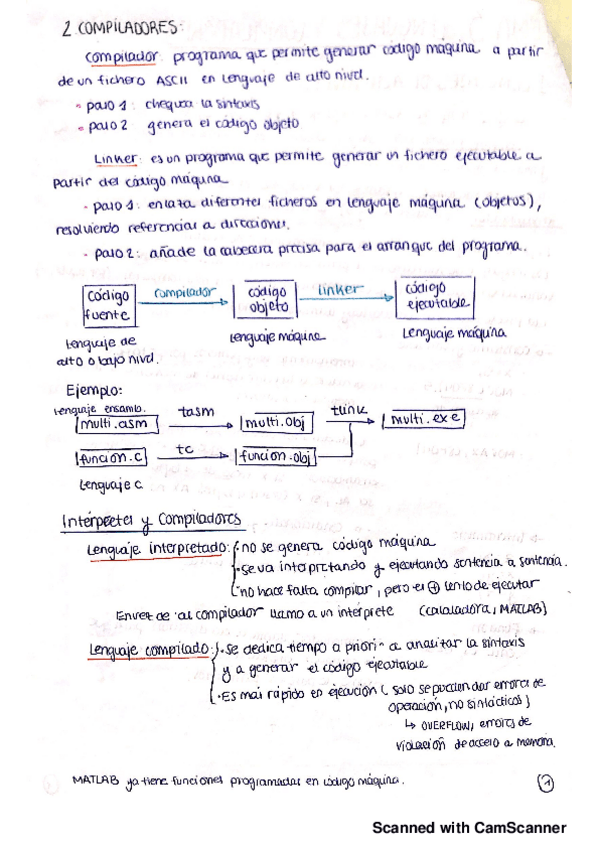 2. COMPILADORES:
Compilador: programa que permite generar código máquina a partir
de un fichero ASCII en lenguaje de alto nivel.
• paso 1: chequea la sintaxis
• paso 2 genera el código objeto
Linker: es un programa que permite generar un fichero ejecutable a
partir del código máquina
• paso 1: enlaza diferentes ficheros en lenguaje máquina (objetos),
resolviendo referencias a direcciones.
• paso 2: añade la cabecera precisa para el arranque del programa.
código fuente compilador código objeto linker código ejecutable
Lenguaje de alto o bajo nivel. lenguaje máquina Lenguaje máquina
Ejemplo:
Lenguaje ensamb.
multi.asm tasm multi.obj tlink multi.exe
funcion.c tc funcion.obj
Lenguaje c.
Intérpretes y Compiladores
Lenguaje interpretado: • no se genera código máquina
• se va interpretando y ejecutando sentencia a sentencia.
• no hace falta compilar, pero es ⊕ lento de ejecutar
En vez de al compilador llamo a un intérprete (calculadora, MATLAB)
Lenguaje compilado: • se dedica tiempo "a priori" a analizar la sintaxis
y a generar el código ejecutable
• Es más rápido en ejecución (solo se pueden dar errores de
operación, no sintácticos)
↳ OVERFLOW, errores de
violación de acceso a memoria.
MATLAB ya tiene funciones programadas en código máquina. 1
Scanned with CamScanner